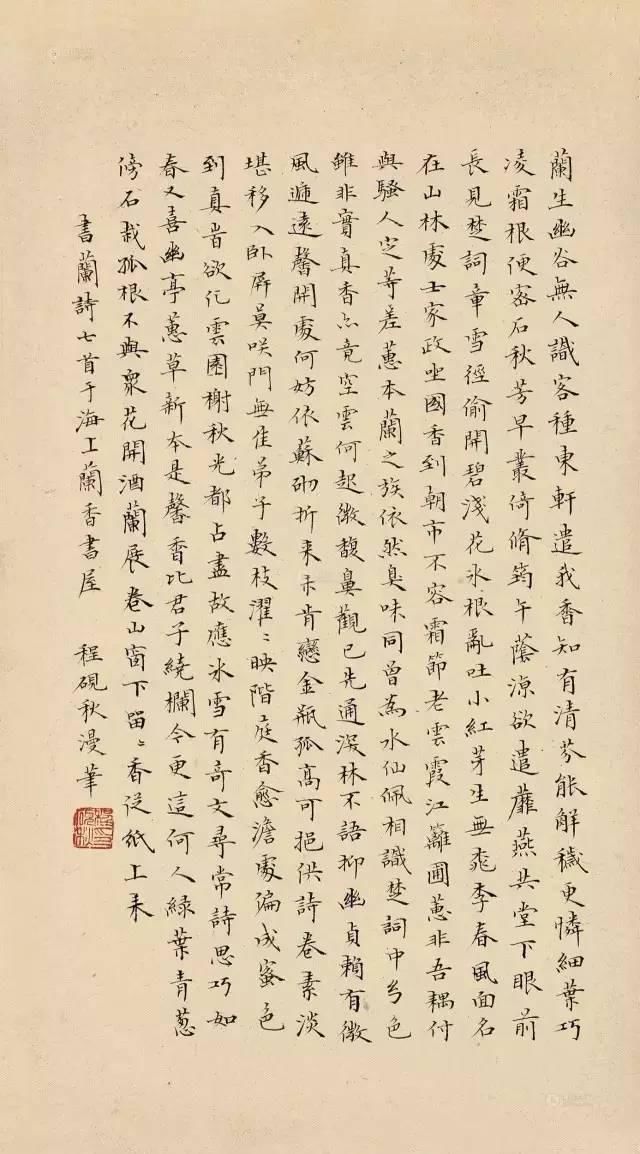 蘭生幽谷無人識客種東軒遣我香知有清芬能解穢更憐細葉巧
凌霜根便密石秋芳早叢倚脩筠午蔭涼欲遣蘼蕪共堂下眼前
長見楚詞章雪徑偷開碧淺花氷根亂吐小紅芽生無桃李春風面名
在山林處士家政坐國香到朝市不容霜節老雲霞江蘺圃蕙非吾耦付
與騷人定等差蕙本蘭之族依然臭味同曾為水仙佩相識楚詞中兮色
雖非實真香亦竟空雲何起微馥鼻觀已先通深林不語抑幽貞賴有微
風遞遠馨開處何妨依蘚砌折来未肯戀金瓶孤高可挹供詩卷素淡
堪移入臥屏莫咲門無佳弟子數枝濯〻映階庭香愈澹處偏成蜜色
到真旹欲化雲園榭秋光都占盡故應氷雪有奇文尋常詩思巧如
春又喜幽亭蕙草新本是馨香比君子繞欄今更這何人綠葉青葱
傍石栽孤根不與衆花開酒蘭展卷山窗下畱〻香從紙上来
書蘭詩七首于海上蘭香書屋 程硯秋漫筆